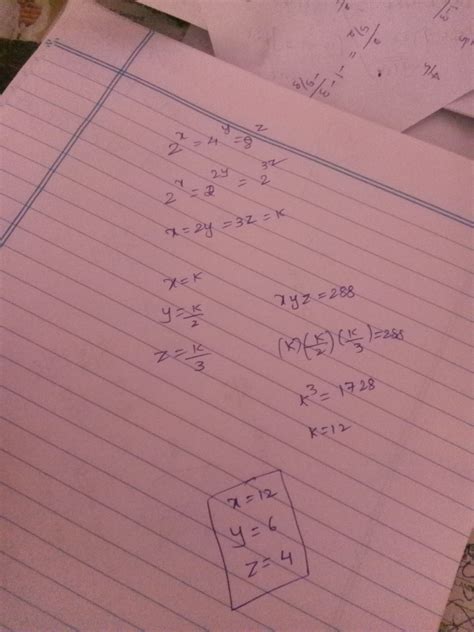 2^x = 4^y = 8^z
2^x = 2^2y = 2^3z
x = 2y = 3z = k
x = k
y = k/2
z = k/3
xyz = 288
(k)(k/2)(k/3) = 288
k^3 = 1728
k = 12
x = 12
y = 6
z = 4